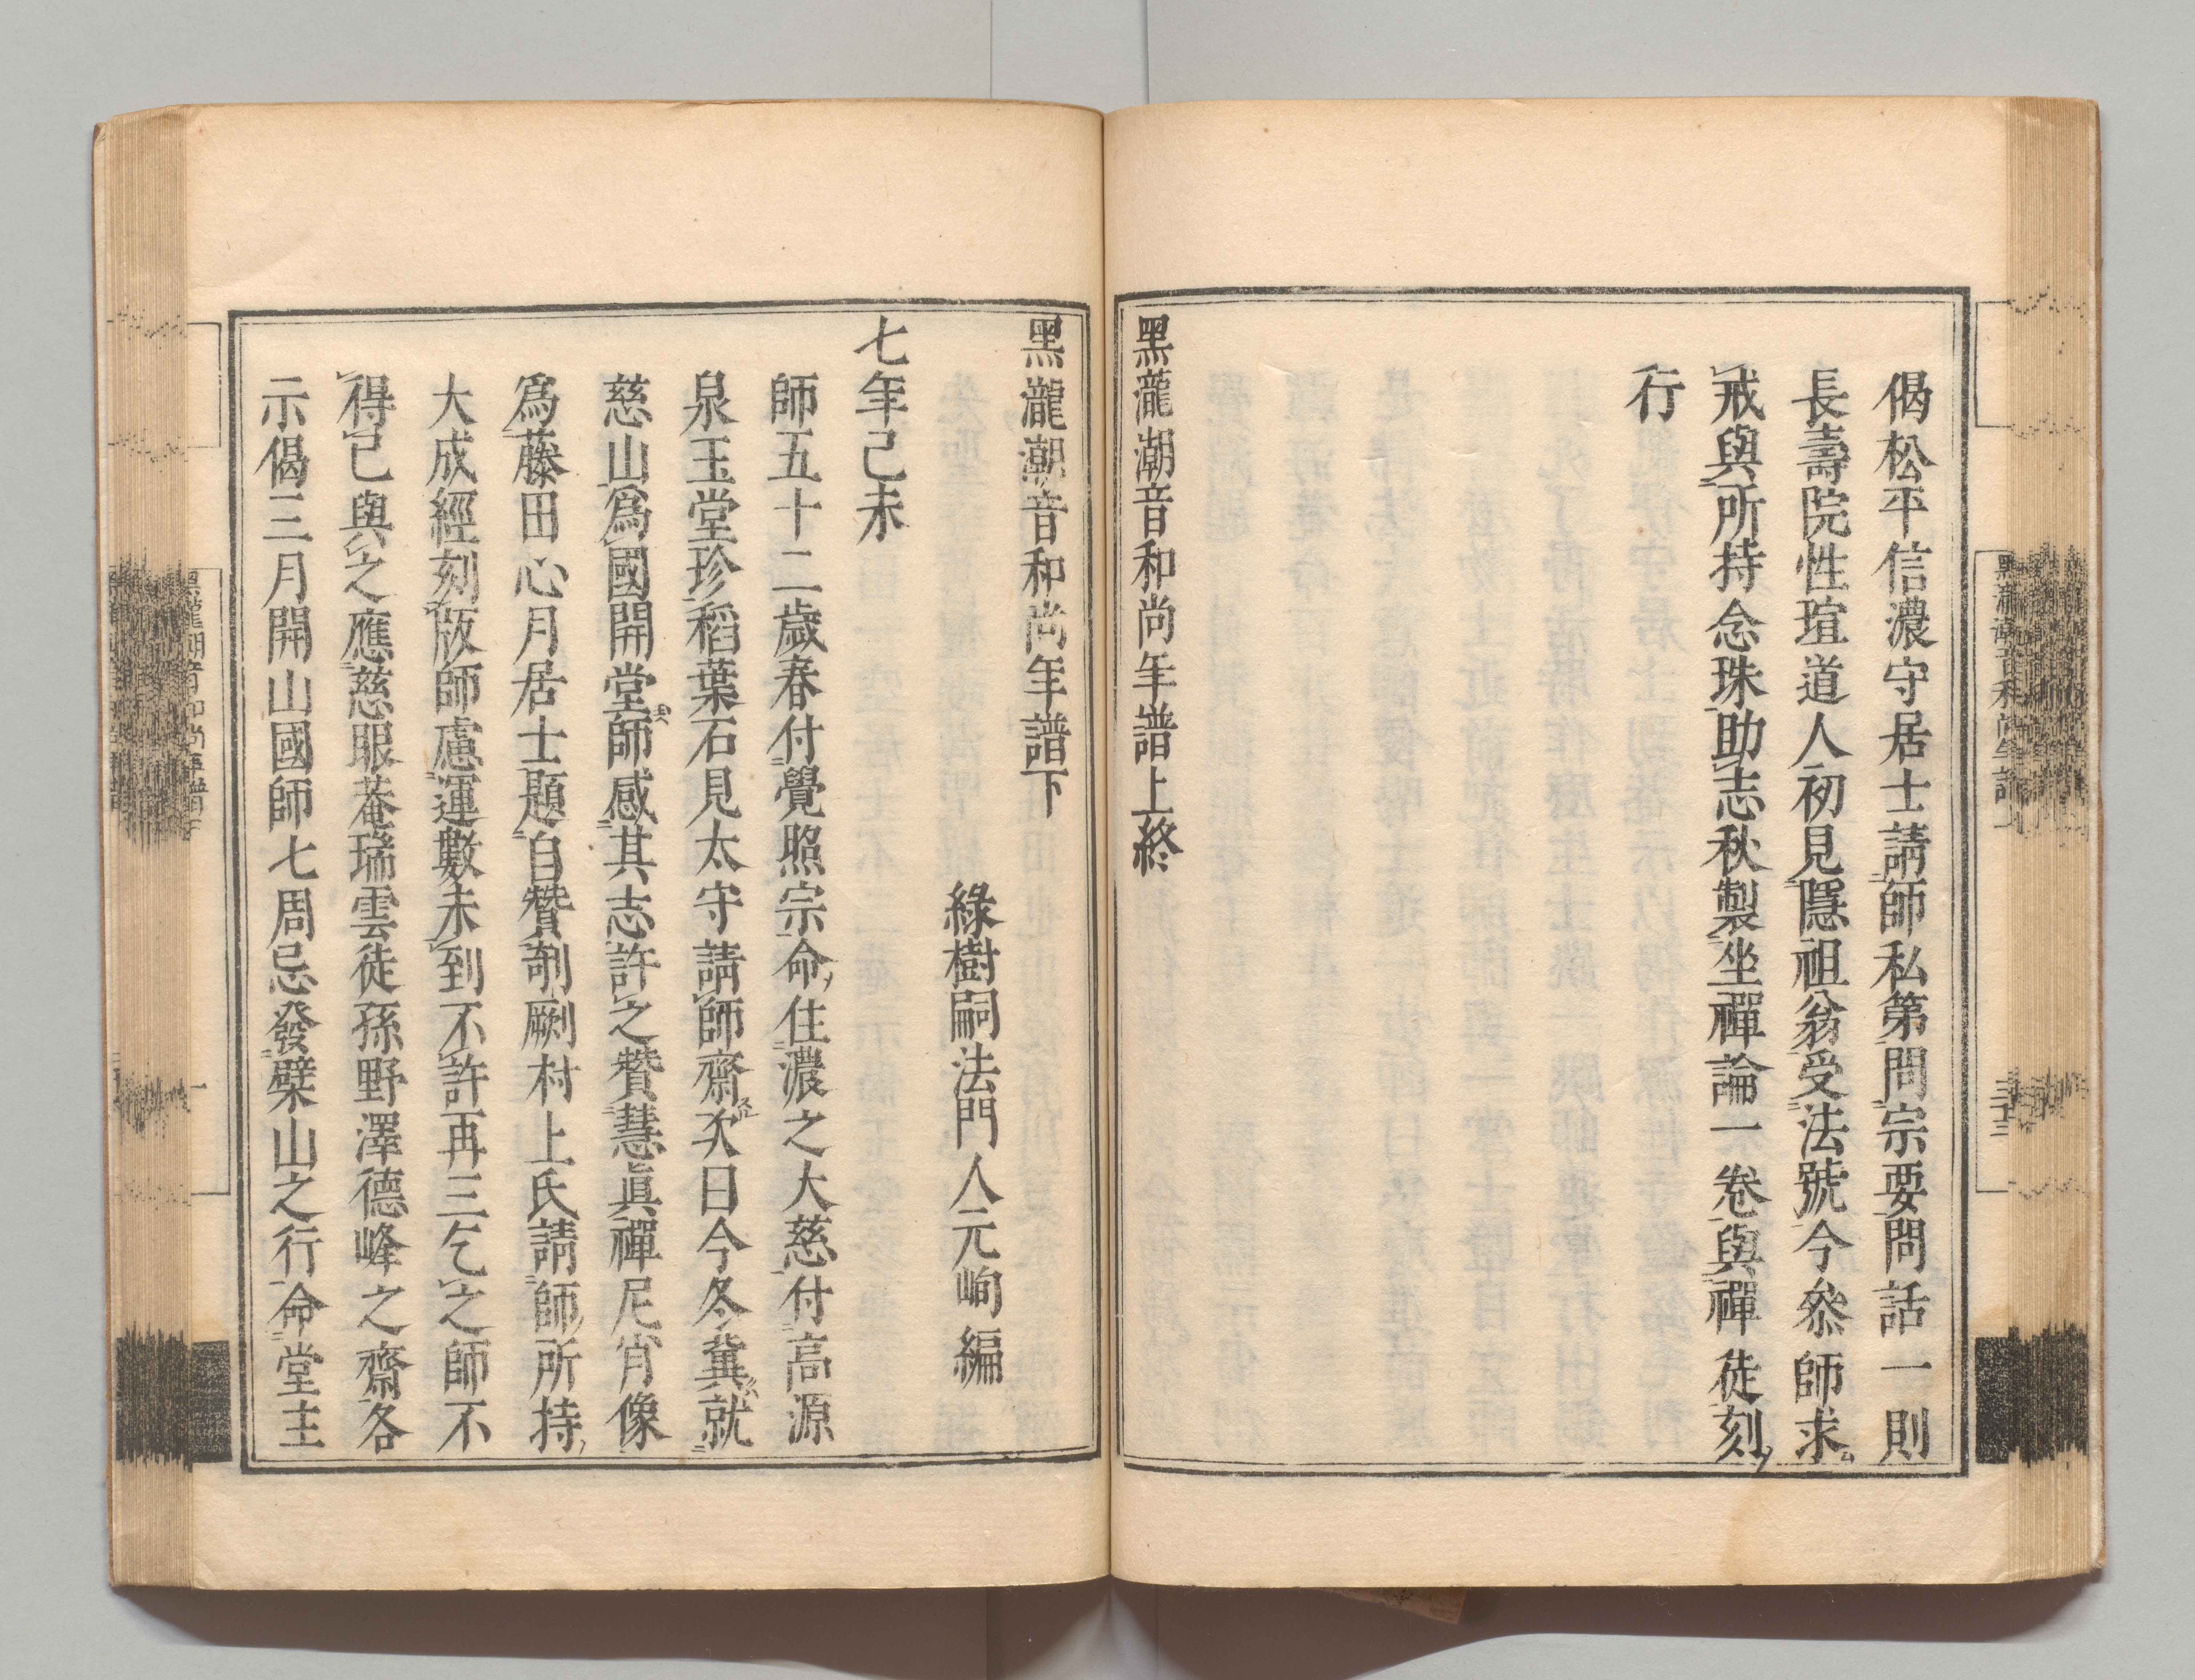 偈松平信濃守居士請師私第問宗要問話一則
長壽院性瑄道人初見隱祖翁受法號今叅師求
戒與所持念珠助志秋製坐禪論一卷與禪徒刻
行
黑瀧潮音和尚年譜上終
黑瀧潮音和尚年譜下
綠樹嗣法門人元峋編
七年己未
師五十二歲春付覺照宗命住濃之大慈付高源
泉玉堂珍稻葉石見太守請師齋次日今冬冀就
慈山爲國開堂師感其志許之贊慧眞禪尼肖像
爲藤田心月居士題自贊剞劂村上氏請師所持
大成經刻版師慮運數未到不許再三乞之師不
得已與之應慈眼菴瑞雲徒孫野澤德峰之齋各
示偈三月開山國師七周忌發檗山之行命堂主